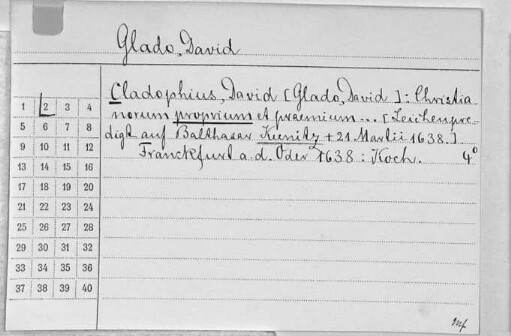 Glado, David
Cladophius, David [Glado, David]: Christia-
norum proprium et praemium... [Leichenpre-
digt auf Balthasar Kunitz + 21. Martii 1638.]
Franckfurt a. d. Oder 1638: Koch. 4°
1 2 3 4
5 6 7 8
9 10 11 12
13 14 15 16
17 18 19 20
21 22 23 24
25 26 27 28
29 30 31 32
33 34 35 36
37 38 39 40